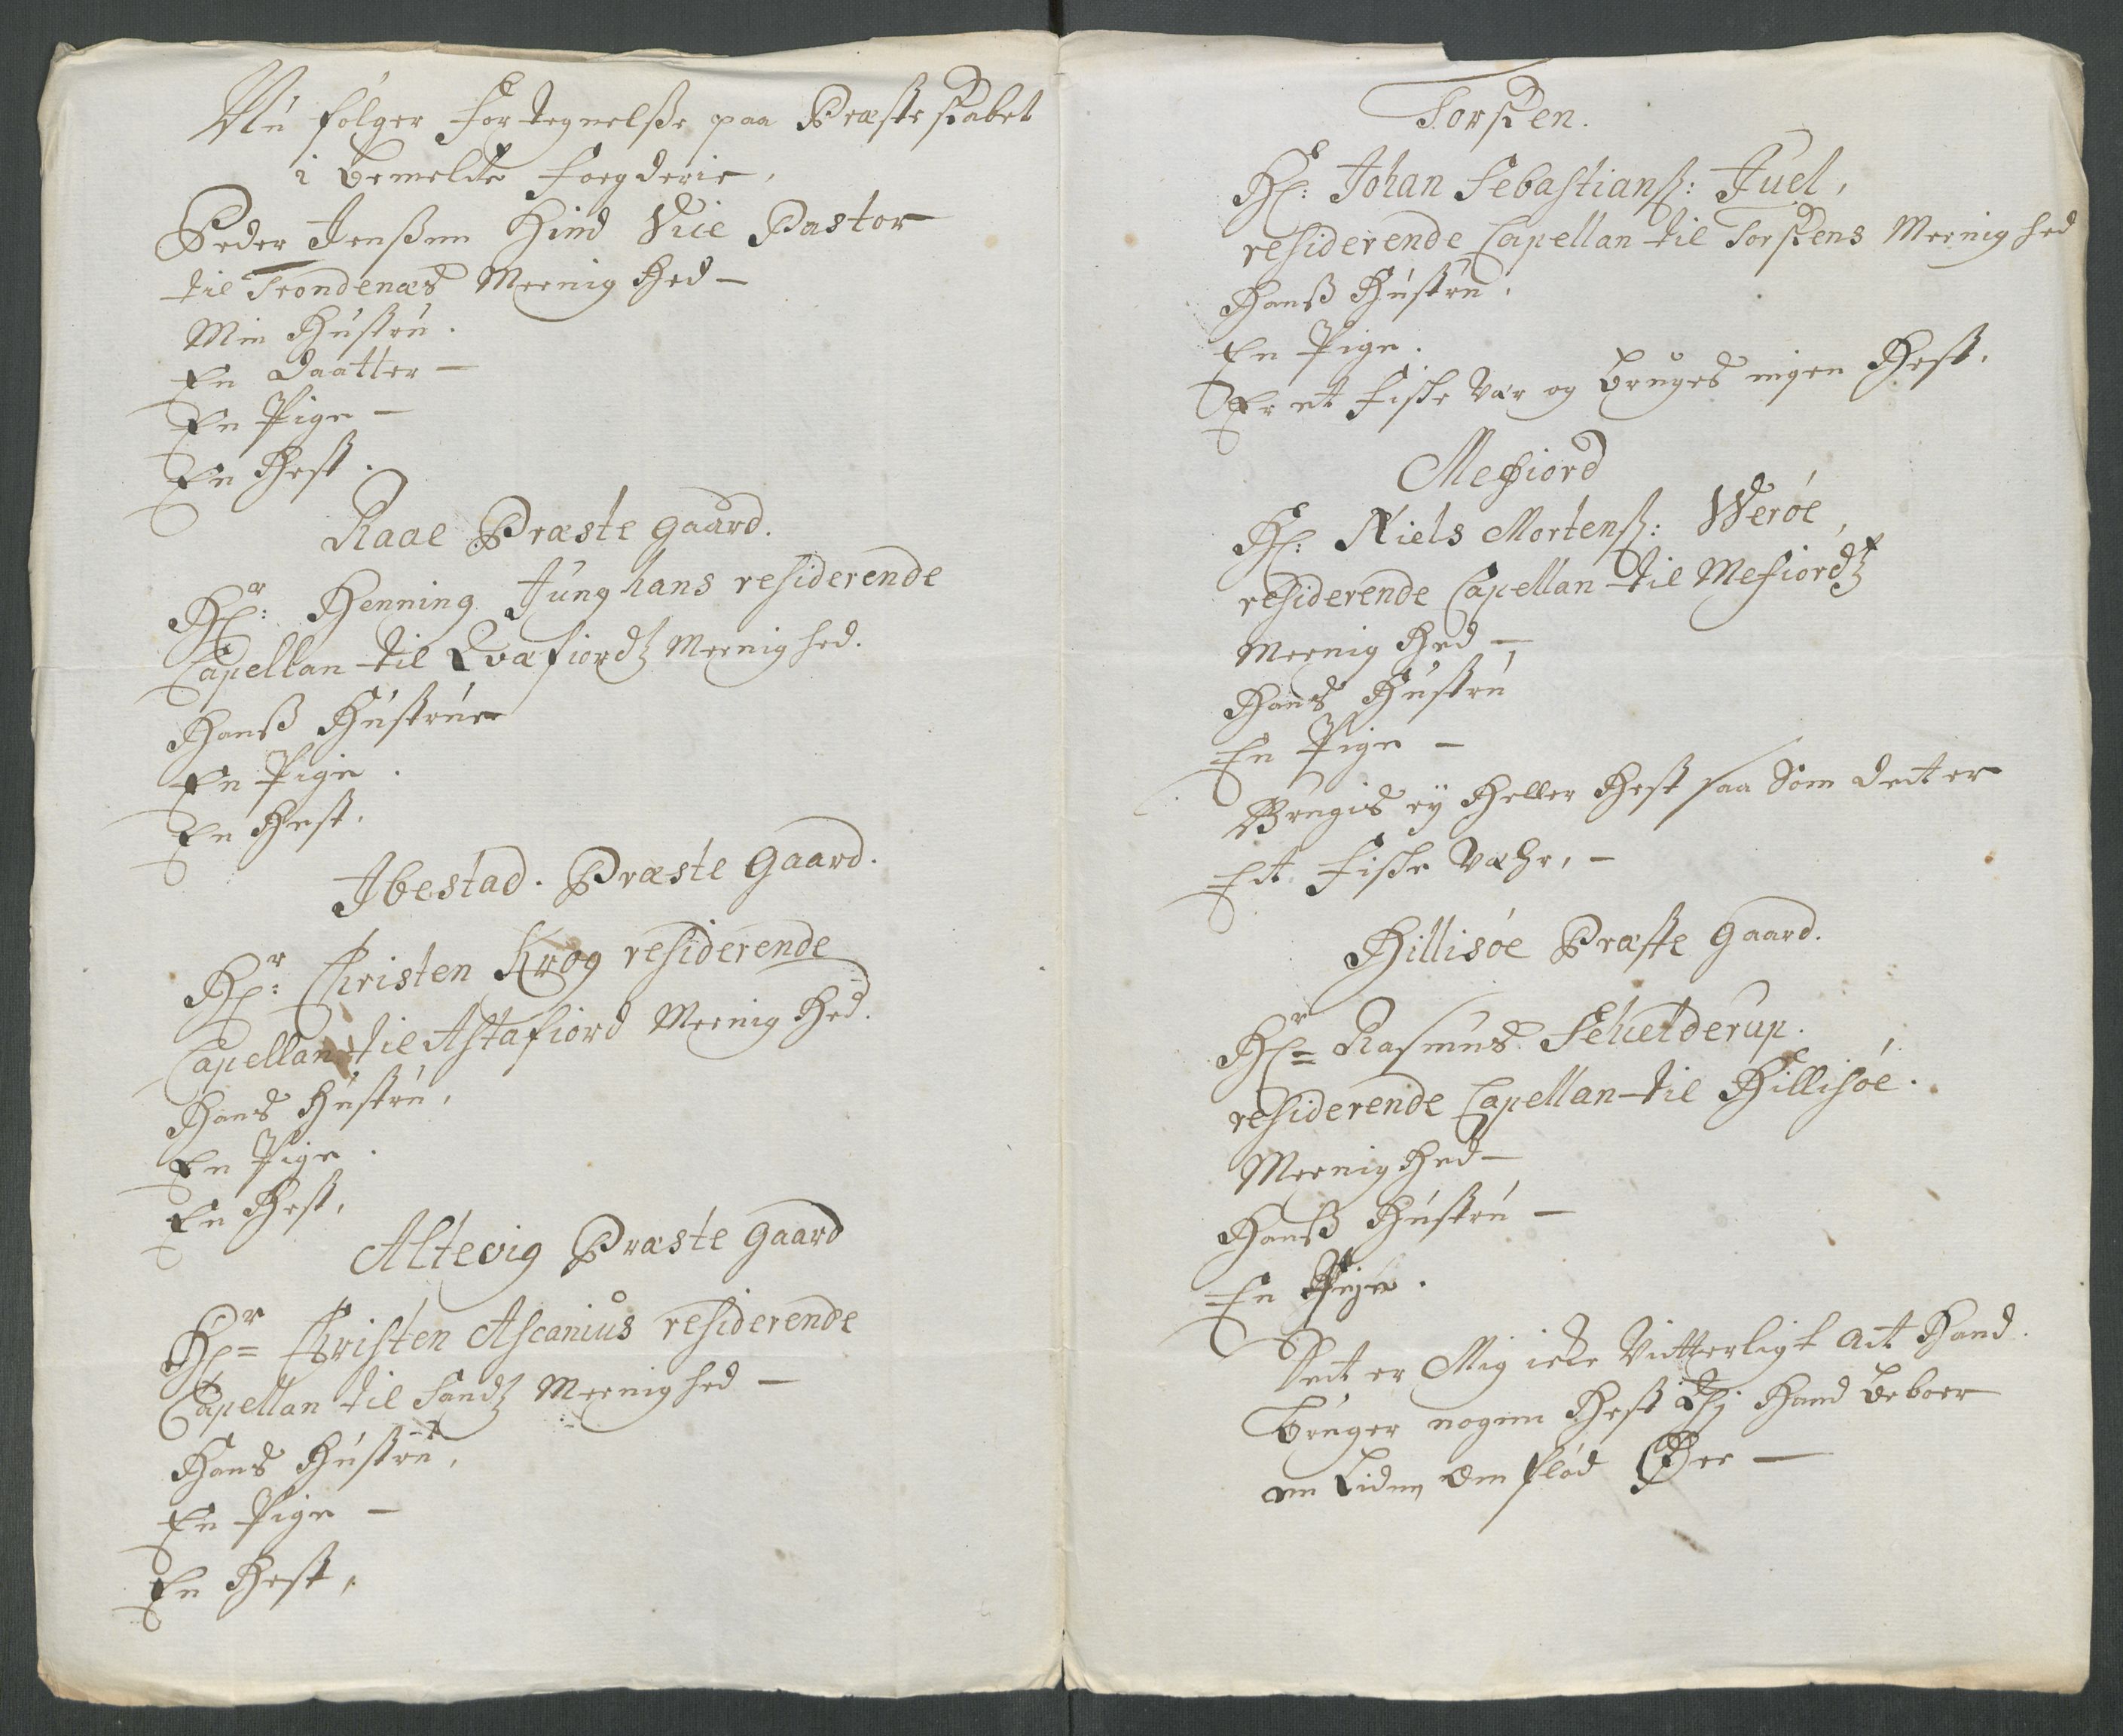 Nu følger Fortegnelße paa Præsteskabet
i bemelte Foegderie,
Peder Jenßen Hind Vice Pastor
til Trondenæs Meenighed –
Min Hustru.
En Daatter –
En Pige –
En Hest.
Raae Præste gaard.
Hr: Henning Junghans residerende
Capellan til Qvæfiordtz Meenighed.
Hanß Hustrue
En Pige.
En Hest.
Ibestad. Præste Gaard.
Hr: Christen Krog residerende
Capellan til Astafiord Meenighed.
Hans Hustru,
En Pige.
En Hest,
Altevig Præste gaard
Hr= Christen Ascanius residerende
Capellan til Sandtz Meenighed –
Hans Hustru,
En Pige –
En Hest,
Torsken.
Hr: Johan Sebastianß: Juel,
residerende Capellan til Torskens Meenighed
Hanß Hustru,
En Pige.
Er et Fiske Vær og bruges ingen Hest.
Mefiord
Hr: Niels Mortenß: Werøe,
residerende Capellan til Mefiordtz
Meenighed –
Hans Hustru
En Pige –
Brugis ey Heller Hest saa Som det er
Et Fiske Væhr, –
Hillisøe Præste Gaard.
Hr= Rasmus Schelderup.
residerende Capellan til Hillisøe.
Meenighed –
Hanß Hustru –
En Pige.
Det er Mig icke Vitterligt At Hand
bruger nogen Hest Thj Hand beboer
en Liden Om flød Øe –